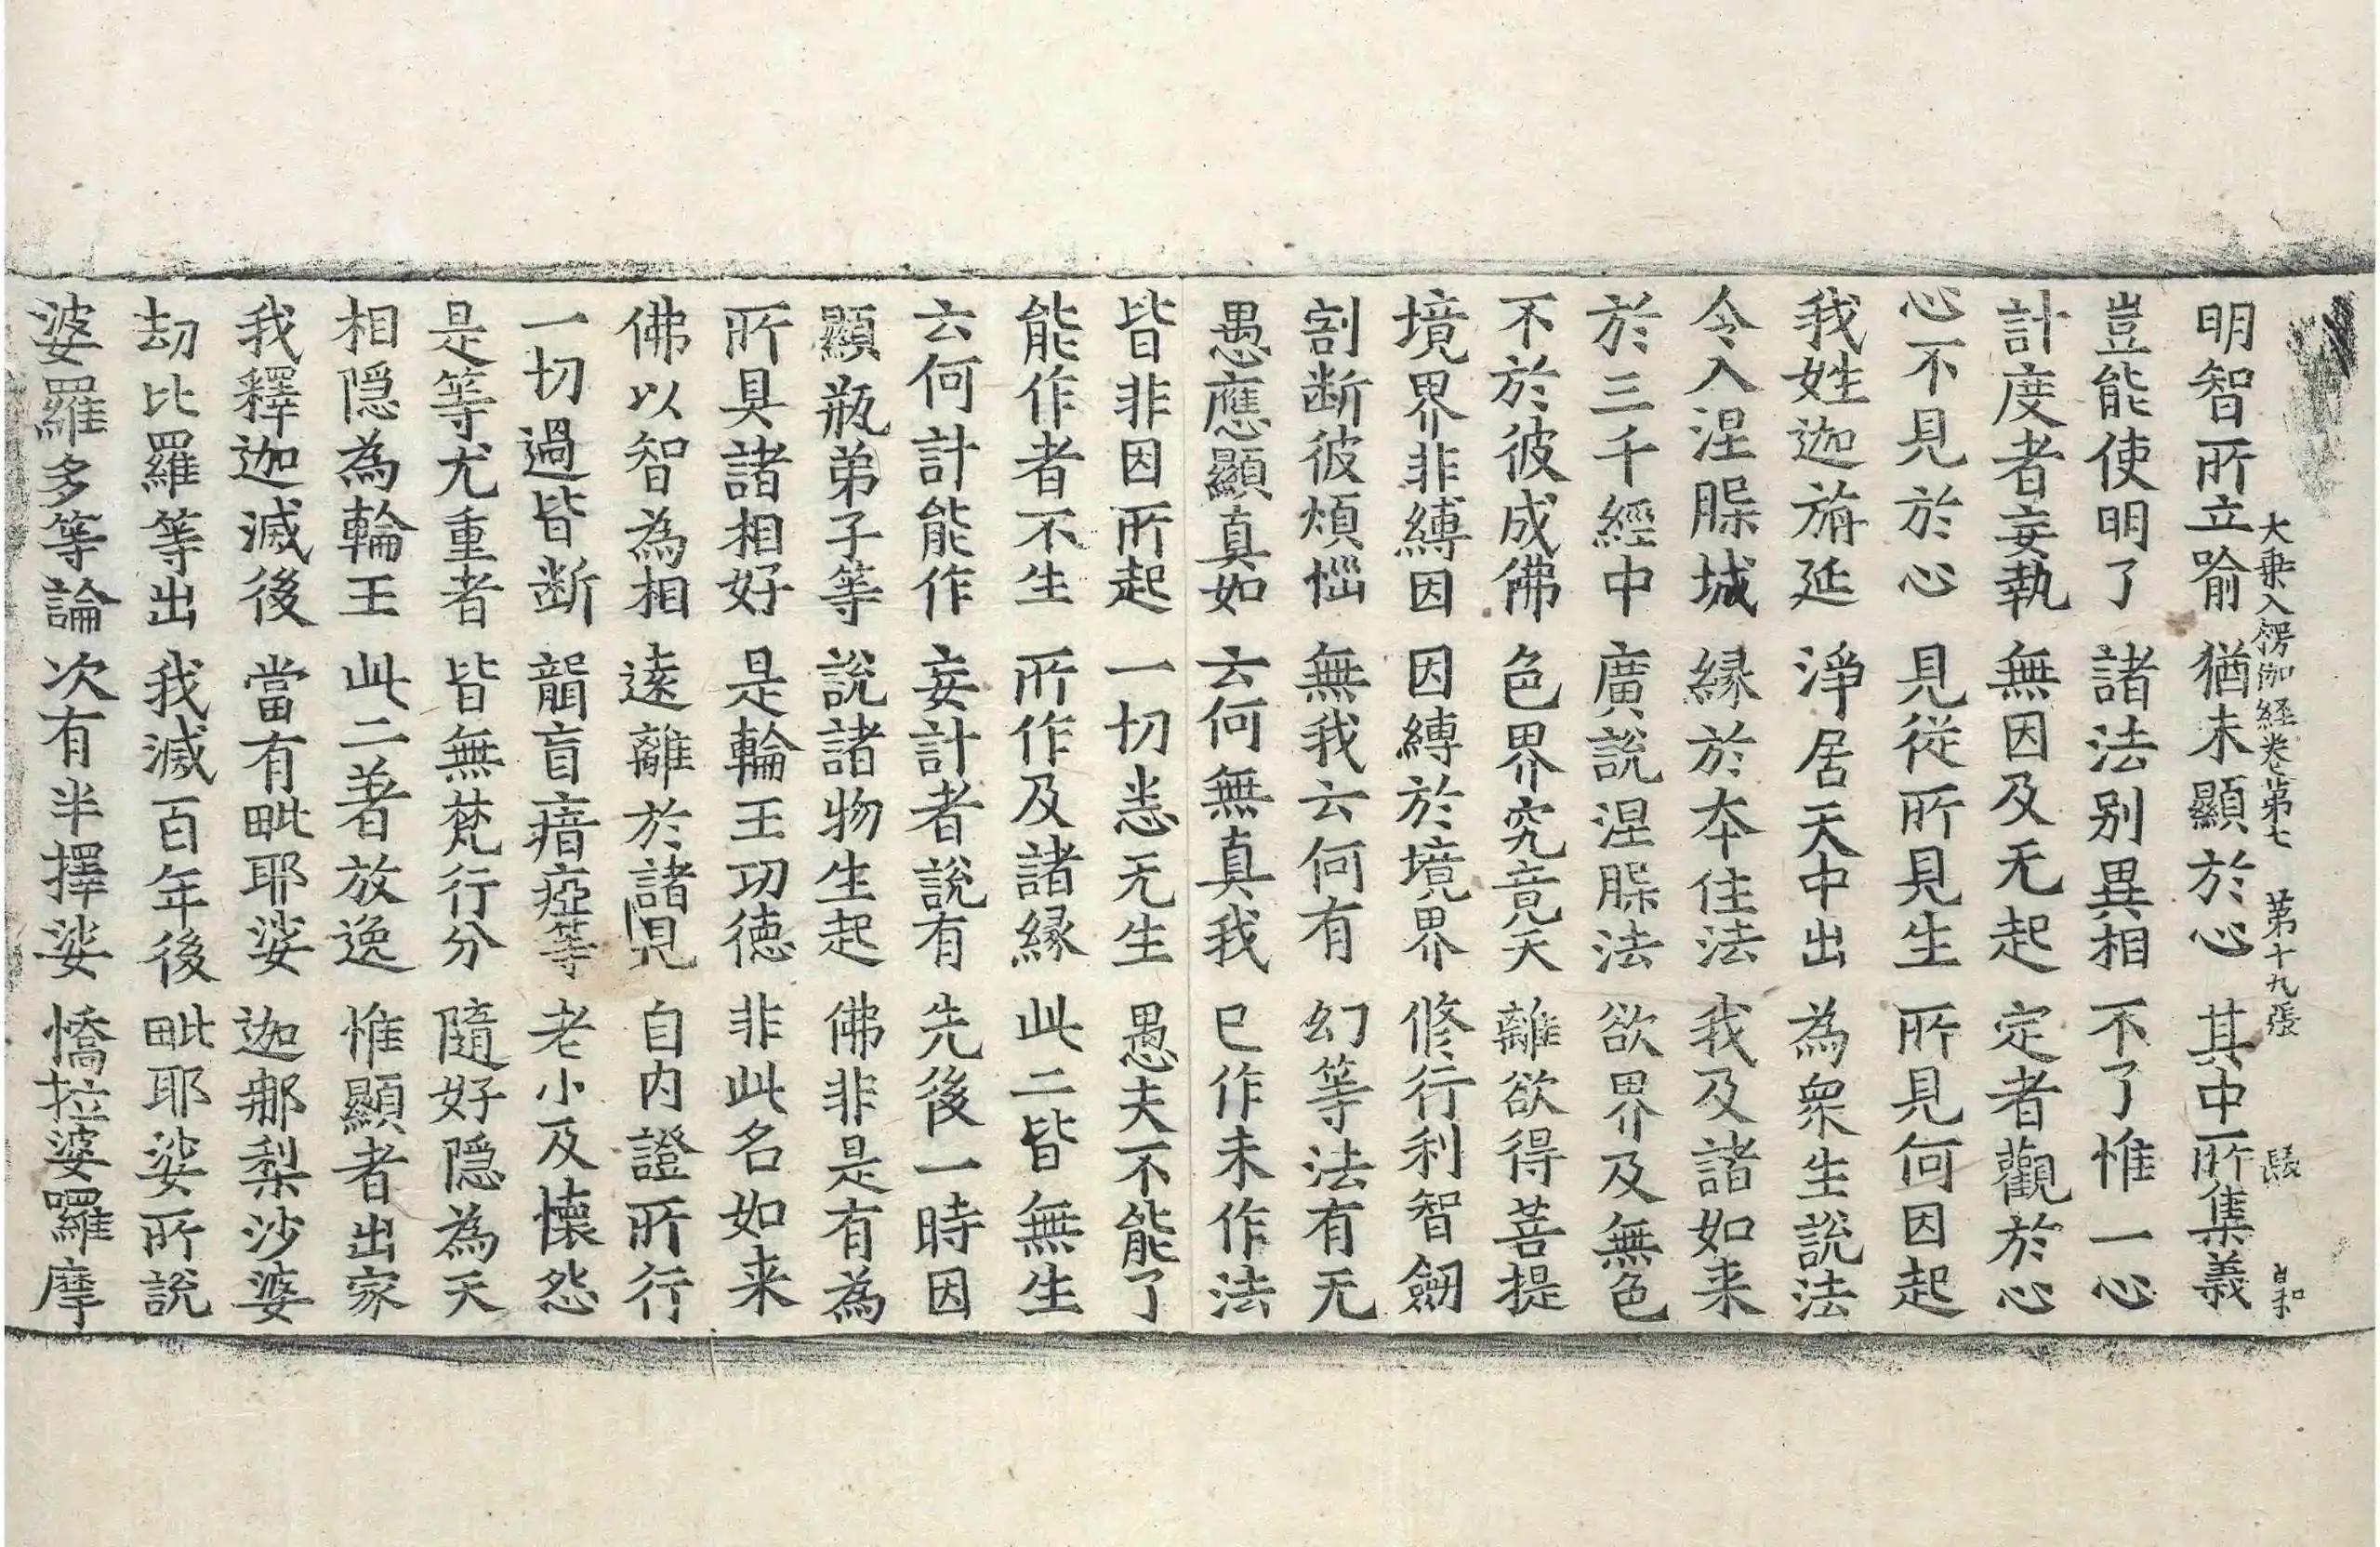 大乗入楞伽経卷第七 第十九張 自和
明智所立喻 猶未顯於心 其中所集義
豈能使明了 諸法别異相 不了惟一心
計度者妄執 無因及无起 定者觀於心
心不見於心 見從所見生 所見何因起
我姓迦旃延 淨居天中出 為衆生說法
令入涅槃城 縁於夲住法 我及諸如来
於三千經中 廣說涅槃法 欲界及無色
不於彼成佛 色界究竟天 離欲得菩提
境界非縛因 因縛於境界 修行利智劒
割断彼煩惱 無我云何有 幻等法有无
愚應顯真如 云何無真我 已作未作法
皆非因所起 一切悉无生 愚夫不能了
能作者不生 所作及諸縁 此二皆無生
云何計能作 妄計者說有 先後一時因
顯瓶弟子等 說諸物生起 佛非是有為
所具諸相好 是輪王功徳 非此名如来
佛以智為相 逺離於諸見 自内證所行
一切過皆断 聾盲瘖瘂等 老小及懐怨
是等尤重者 皆無梵行分 隨好隠為天
相隠為輪王 此二著放逸 惟顯者出家
我釋迦滅後 當有毗耶娑 迦那梨沙婆
劫比羅等出 我滅百年後 毗耶娑所說
婆羅多等論 次有半擇娑 憍拉婆囉摩